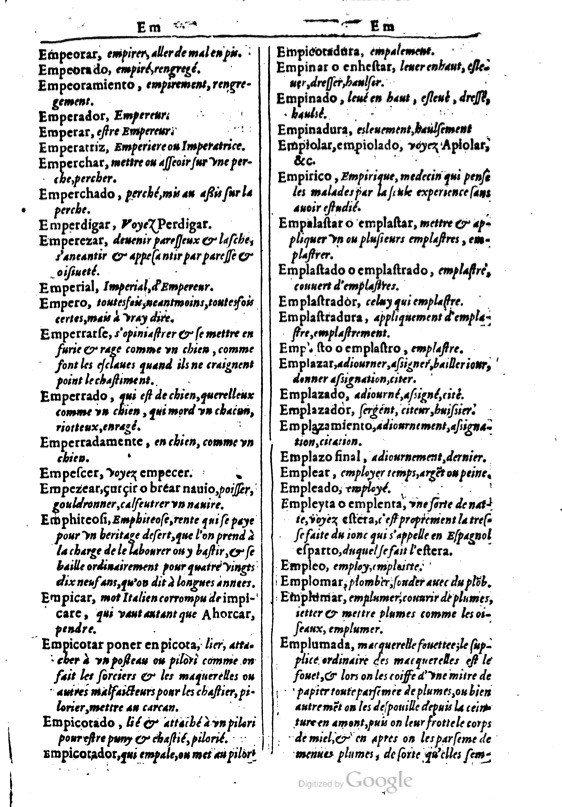 Em
Em
Empeorar, empirer, aller de mal en pis.
Empeorado, empiré, rengregé.
Empeoramiento, empirement, rengre-
gement.
Emperador, Empereur.
Emperar, estre Empereur.
Emperatriz, Emperiere ou Imperatrice.
Emperchar, mettre ou asseoir sur vne per-
che, percher.
Emperchado, perché, mis au assis sur la
perche.
Emperdigar, Voyez Perdigar.
Emperezar, deuenir paresseux & lasche,
s'aneantir & appesantir par paresse &
oisiueté.
Emperial, Imperial, d'Empereur.
Empero, toutesfois, neantmoins, toutesfois
certes, mais à vray dire.
Emperrarse, s'opiniastrer & se mettre en
furie & rage comme vn chien, comme
font les esclaues quand ils ne craignent
point le chastiment.
Emperrado, qui est de chien, querelleux
comme vn chien, qui mord vn chacun,
riotteux, enragé.
Emperradamente, en chien, comme vn
chien.
Empescer, voyez empecer.
Empezear, çurçir o brear nauio, poisser,
gouldronner, calfeutrer vn nauire.
Emphiteosi, Emphiteose, rente qui se paye
pour vn heritage desert, que l'on prend à
la charge de le labourer ou y bastir, & se
baille ordinairement pour quatre vingts
dix neuf ans, qu'on dit à longues années.
Empicar, mot Italien corrompu de impi-
care, qui vaut autant que Ahorcar,
pendre.
Empicotar poner en picota, lier, atta-
cher à vn posteau ou pilori comme on
fait les sorciers & les maquerelles ou
autres malfaicteurs pour les chastier, pi-
lorier, mettre au carcan.
Empicotado, lié & attaché à vn pilori
pour estre puny & chastié, pilorié.
Empicotador, qui empale, ou met au pilori
Empicotadura, empalement.
Empinar o enhestar, leuer en haut, esle-
uer, dresser, haulser.
Empinado, leué en haut, esleué, dressé,
haulsé.
Empinadura, esleuement, haulsement
Empiolar, empiolado, voyez Apiolar,
&c.
Empirico, Empirique, medecin qui pense
les malades par la seule experience sans
auoir estudié.
Empalastar o emplastar, mettre & ap-
pliquer vn ou plusieurs emplastres, em-
plastrer.
Emplastado o emplastrado, emplastré,
couuert d'emplastres.
Emplastrador, celuy qui emplastre.
Emplastradura, appliquement d'empla-
stre, emplastrement.
sto o emplastro, emplastre.
Emplazar, adiourner, assigner, bailler iour,
donner assignation, citer.
Emplazado, adiourné, assigné, cité.
Emplazador, sergent, citeur, huissier.
Emplazamiento, adiournement, assigna-
tion, citation.
Emplazo final, adiournement, dernier.
Emplear, employer temps, argẽt ou peine.
Empleado, employé.
Empleyta o emplenta, vne sorte de nat-
te, voyez estera, c'est proprement la tresse
se faite du ionc qui s'appelle en Espagnol
esparto, duquel se fait l'estera.
Empleo, employ, emplaitte.
Emplomar, plomber, souder auec du plõb.
Emplumar, emplumer, couurir de plumes,
ietter & mettre plumes comme les oi-
seaux, emplumer.
Emplumada, maquerelle fouettee; le sup-
plice ordinaire des maquerelles est le
fouet, & lors on les coiffe d'vne mitre de
papier toute parsemée de plumes, ou bien
autremẽt on les despouille depuis la cein-
ture en amont, puis on leur frotte le corps
de miel, & en apres on les parseme de
menues plumes, de sorte qu'elles sem-
Digitized by Google